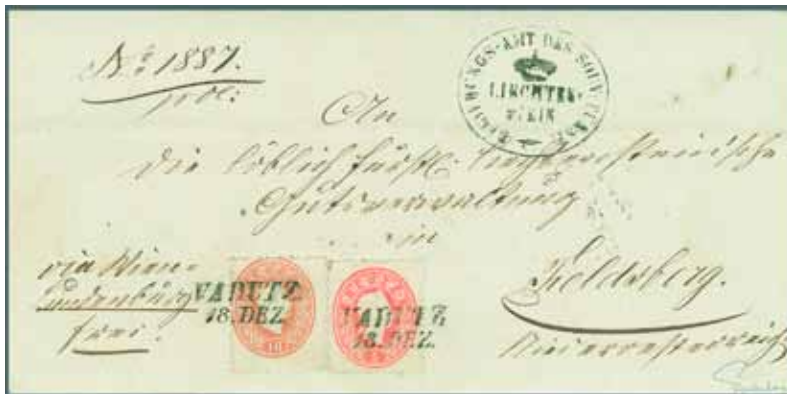 No: 1887.
pol:
REGIERUNGS-AMT DES SOUV. FÜRST.
LIECHTEN-
STEIN
An
die löblich fürstl: liechtensteinische
Gutsverwaltung
in
Feldsberg.
Niederoesterreich
via Wien-
Lundenburg
frei.
VADUTZ
18. DEZ.
VADUTZ
18. DEZ.
10